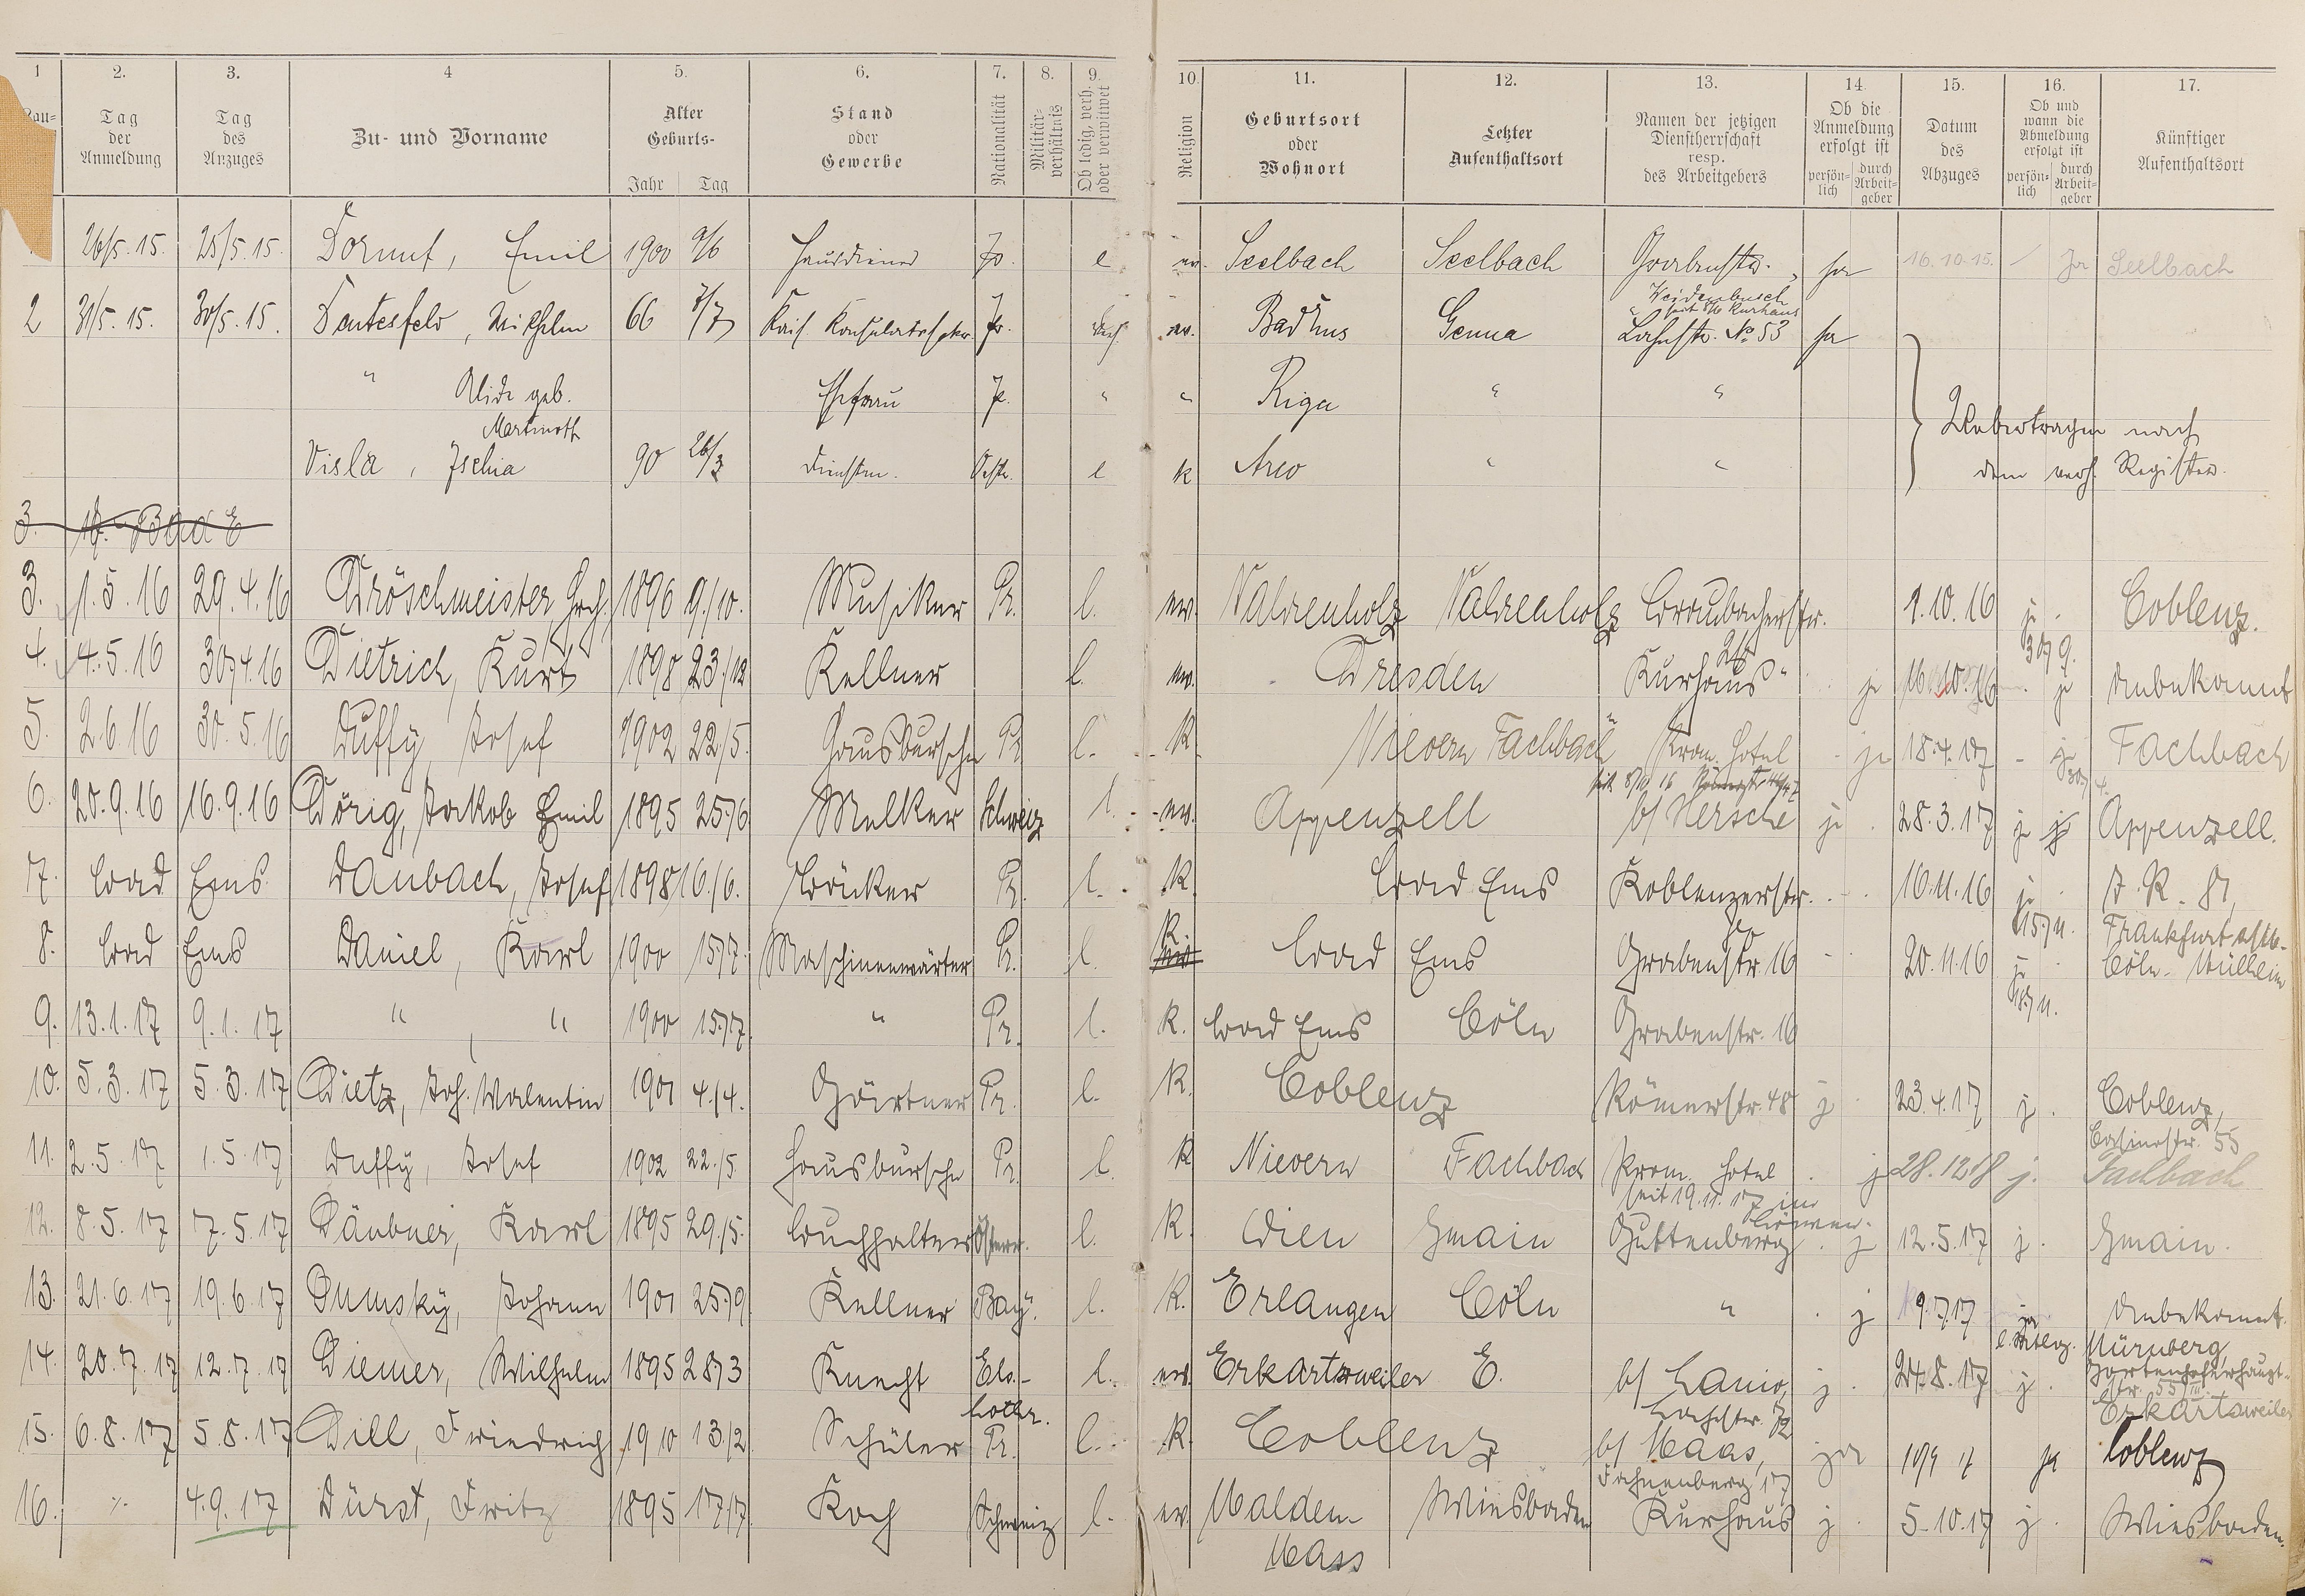 1 2. 3. 4 5. 6. 7. 8. 9. 10. 11. 12. 13. 14. 15. 16. 17.
Tag der Anmeldung
Tag des Anzuges
Zu- und Vorname
Alter Geburts- Jahr Tag
Stand oder Gewerbe
Nationalität
Militär-verhältnis
Ob ledig, verh. oder verwitwet
Religion
Geburtsort oder Wohnort
Letzter Aufenthaltsort
Namen der jetzigen Dienstherrschaft resp. des Arbeitgebers
Ob die Anmeldung erfolgt ist persön-lich durch Arbeit-geber
Datum des Abzuges
Ob und wann die Abmeldung erfolgt ist persön-lich durch Arbeit-geber
Künftiger Aufenthaltsort
26/5. 15. 25/5. 15. Emil 1900 9/6 Hausdiener l ev. Seelbach Seelbach ja 16.10.15. Ja Seelbach
2 31/5. 15. 30/5. 15. Wilhelm 66 Pr. ev. Bad Ems Genua Weidenbusch Kurhaus Lahnstr. No 53 ja
" Alide geb. Ehefrau " " Riga " "
Visla, Ischia 90 26/3 Oestr. l k Arco " " Uebertragen nach dem verh. Register.
3. Bad E
3. 1. 5. 16 29. 4. 16 Dröschmeister, 1896 9./10. Musiker Pr. l. ev. Vahrenholz Vahrenholz Braubacherstr. 9.10.16 j. Coblenz.
4. 4. 5. 16 30./4. 16 Dietrich, Kurt 1898 23./12 Kellner l. ev. Dresden Kurhaus je 30/9. je Unbekannt
5. 2.6.16 30. 5. 16 Duffy, Josef 1902 22./5. Hausbursche Pr l. K. Nievern Fachbach Prom. Hotel je 18.4.17 je Fachbach
6. 20. 9. 16 16. 9. 16 Dörig, Jakob Emil 1895 25./6 Melker Schweiz l. ev. Appenzell b/ Hersche je 28. 3. 17 je Appenzell.
7. Bad Ems Danbach, Josef 1898 16./6. Bäcker Pr. l. K. Bad Ems Koblenzerstr. 16.11.16 j J. R. 81, Frankfurt a/M.
8. Bad Ems Daniel, Karl 1900 15./7. Maschinenwärter Pr. l. K. Bad Ems Grabenstr. 16 20. 11. 16 j 15./11. Cöln-Mülheim
9. 13. 1. 17 9. 1. 17 " , " 1900 15./7. " Pr. l. K. Bad Ems Cöln Grabenstr. 16 18./11.
10. 5. 3. 17 5. 3. 17 Dietz, Joh. Valentin 1901 4./4. Gärtner Pr. l. K. Coblenz Römerstr. 48 j 23. 4. 17 j. Coblenz, Casinostr. 55
11. 2. 5. 17 1. 5. 17 Duffy, Josef 1902 22./5 Hausbursche Pr. l. K Nievern Fachbach Prom. Hotel seit 19. 11. 17 im Löwen. j 28. 12 18 j. Fachbach
12. 8. 5. 17 7. 5. 17 Däubner, Karl 1895 29./5. Buchhalter Österr. l. K. Wien Gmain Guttenberg j 12. 5. 17 j. Gmain.
13. 21. 6. 17 19. 6. 17 Dumsky, Johann 1901 25./9 Kellner Bay. l. K. Erlangen Cöln " j 9.7.17 ja Unbekannt.
14. 20. 7. 17 12. 7. 17 Diemer, Wilhelm 1895 28/3 Knecht Els.-Lothr. l. ev. Erkartsweiler E. b/ Lanio, Lahnstr. 72 j. 24. 8. 17 j. Nürnberg Erkartsweiler
15. 6. 8. 17 5. 8. 17 Dill, Friedrich 1910 13./2. Schüler Pr. l. K. Coblenz b/ Maas, Fahnenberg 17 ja ja Coblenz
16. 4. 9. 17 Dürst, Fritz 1895 17./7. Koch Schweiz l. ev. Malden Mass Wiesbaden Kurhaus j 5. 10. 17 j. Wiesbaden.